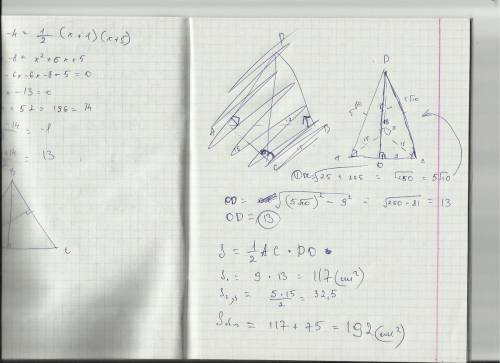 -4 = 1/2 (x + 1)(x + 5)
-8 = x² + 6x + 5
- 6x - 6x - 8 + 5 = 0
x - 13 = 0
+ 52 = 196 = 14
= -1
= 13
B
C
D
A
C
D
O
DC = √25 + 225 = √250 = 5√10
OD = √(5√10)² - 9² = √250 - 81 = 13
OD = 13
S = 1/2 AC · DO
S₁ = 9 · 13 = 117 (см²)
S₂,₃ = 5 · 15 / 2 = 32,5
= 117 + 75 = 192 (см²)